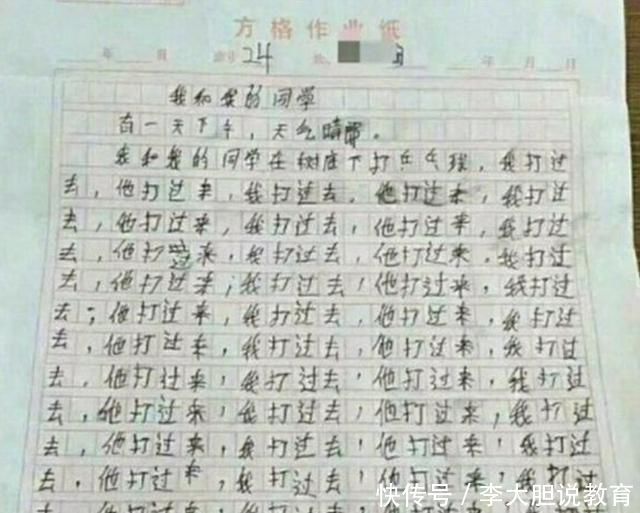 方格作业纸
年 月 24 号 年 月 日
我和我的同学
有一天下午，天气晴朗。
我和我的同学在树底下打乒乓球，我打过
去，他打过来，我打过去，他打过来，我打过
去，他打过来，我打过去，他打过来，我打过
去，他打过来，我打过去，他打过来，我打过
去，他打过来，我打过去，他打过来，我打过
去，他打过来，我打过去，他打过来，我打过
去，他打过来，我打过去，他打过来，我打过
去，他打过来，我打过去，他打过来，我打过
去，他打过来，我打过去，他打过来，我打过
去，他打过来，我打过去，他打过来，我打过
去，他打过来，我打过去，他打过来，我打过
去，他打过来，我打过去，他打过来，我打过
快传号/李大胆说教育